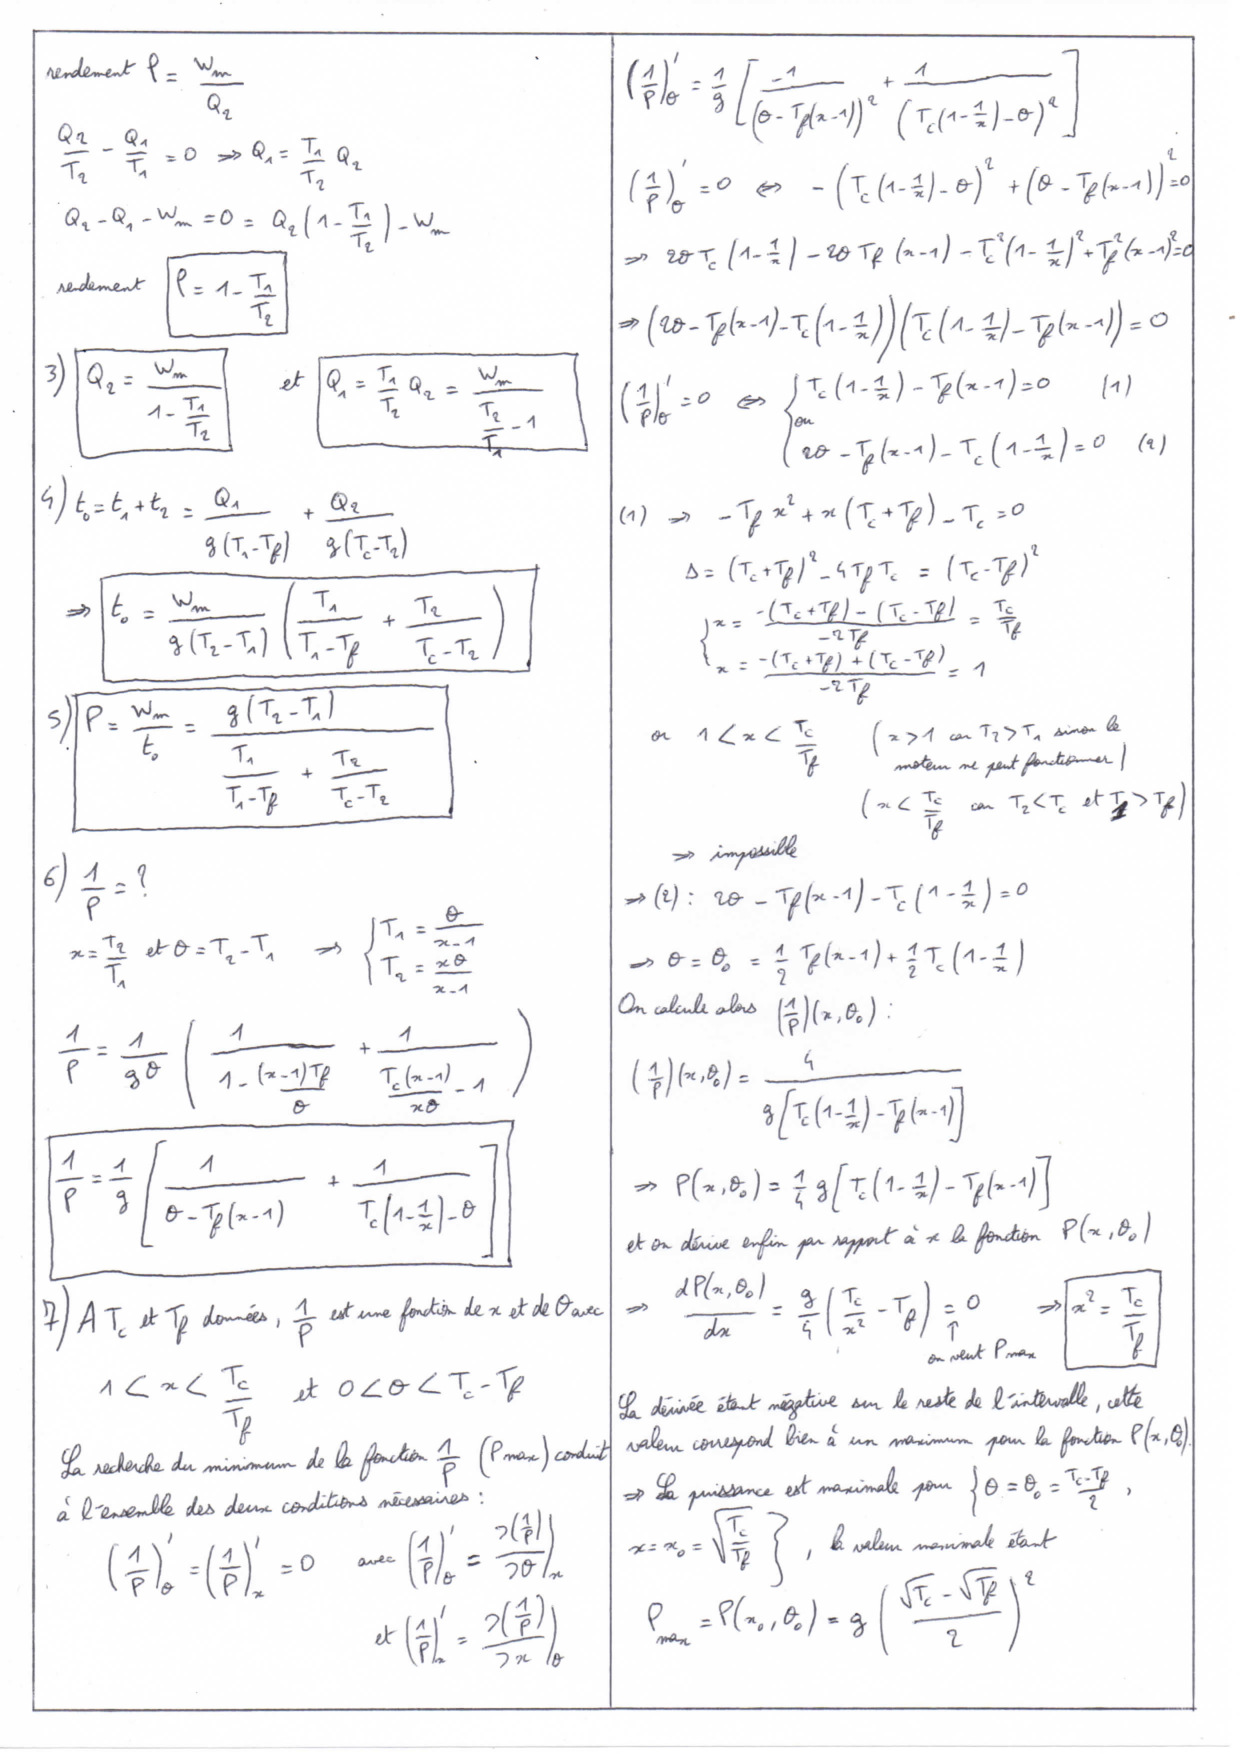 rendement ρ = Wm / Q2
Q2/T2 - Q1/T1 = 0 ⇒ Q1 = T1/T2 Q2
Q2 - Q1 - Wm = 0 = Q2 (1 - T1/T2) - Wm
rendement ρ = 1 - T1/T2
3) Q2 = Wm / (1 - T1/T2) et Q1 = T1/T2 Q2 = Wm / (T2/T1 - 1)
4) t0 = t1 + t2 = Q1 / g(T1-Tf) + Q2 / g(Tc-T2)
⇒ t0 = Wm / g(T2-T1) ( T1 / (T1-Tf) + T2 / (Tc-T2) )
5) P = Wm / t0 = g(T2-T1) / ( T1 / (T1-Tf) + T2 / (Tc-T2) )
6) 1/P = ?
x = T2/T1 et θ = T2-T1 ⇒ { T1 = θ / (x-1)
T2 = xθ / (x-1)
1/P = 1/gθ ( 1 / (1 - (x-1)Tf / θ) + 1 / (Tc(x-1) / xθ - 1) )
1/P = 1/g [ 1 / (θ - Tf(x-1)) + 1 / (Tc(1-1/x) - θ) ]
7) A Tc et Tf données, 1/P est une fonction de x et de θ avec
1 < x < Tc/Tf et 0 < θ < Tc - Tf
La recherche du minimum de la fonction 1/P (Pmax) conduit
à l'ensemble des deux conditions nécessaires :
(1/P)'θ = (1/P)'x = 0 avec (1/P)'θ = ∂(1/P)/∂θ )x
et (1/P)'x = ∂(1/P)/∂x )θ
(1/P)'θ = 1/g [ -1 / (θ - Tf(x-1))² + 1 / (Tc(1-1/x) - θ)² ]
(1/P)'θ = 0 ⇔ - (Tc(1-1/x) - θ)² + (θ - Tf(x-1))² = 0
⇒ 2θ Tc (1-1/x) - 2θ Tf (x-1) - Tc²(1-1/x)² + Tf²(x-1)² = 0
⇒ (2θ - Tf(x-1) - Tc(1-1/x)) (Tc(1-1/x) - Tf(x-1)) = 0
(1/P)'θ = 0 ⇔ { Tc(1-1/x) - Tf(x-1) = 0 (1)
ou
2θ - Tf(x-1) - Tc(1-1/x) = 0 (2)
(1) ⇒ -Tf x² + x(Tc+Tf) - Tc = 0
Δ = (Tc+Tf)² - 4TfTc = (Tc-Tf)²
{ x = (-(Tc+Tf) - (Tc-Tf)) / -2Tf = Tc/Tf
x = (-(Tc+Tf) + (Tc-Tf)) / -2Tf = 1
or 1 < x < Tc/Tf (x > 1 car T2 > T1 sinon le
moteur ne peut fonctionner)
(x < Tc/Tf car T2 < Tc et T1 > Tf)
⇒ impossible
⇒ (2) : 2θ - Tf(x-1) - Tc(1-1/x) = 0
⇒ θ = θ0 = 1/2 Tf(x-1) + 1/2 Tc(1-1/x)
On calcule alors (1/P)(x,θ0) :
(1/P)(x,θ0) = 4 / g[Tc(1-1/x) - Tf(x-1)]
⇒ P(x,θ0) = 1/4 g [Tc(1-1/x) - Tf(x-1)]
et on dérive enfin par rapport à x la fonction P(x,θ0)
⇒ dP(x,θ0)/dx = g/4 (Tc/x² - Tf) = 0 ⇒ x² = Tc/Tf
↑
on veut Pmax
La dérivée étant négative sur le reste de l'intervalle, cette
valeur correspond bien à un maximum pour la fonction P(x,θ0).
⇒ La puissance est maximale pour { θ = θ0 = (Tc-Tf)/2 ,
x = x0 = √(Tc/Tf) } , la valeur maximale étant
Pmax = P(x0,θ0) = g ( (√Tc - √Tf) / 2 )²